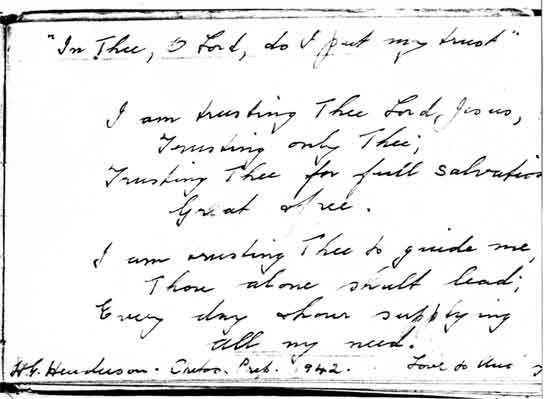 "In Thee, O Lord, do I put my trust"
I am trusting Thee Lord, Jesus,
Trusting only Thee;
Trusting Thee for full salvation
Great & free.
I am trusting Thee to guide me,
Thou alone shalt lead;
Every day & hour supplying
all my need.
H.G. Henderson. 1942. Love to